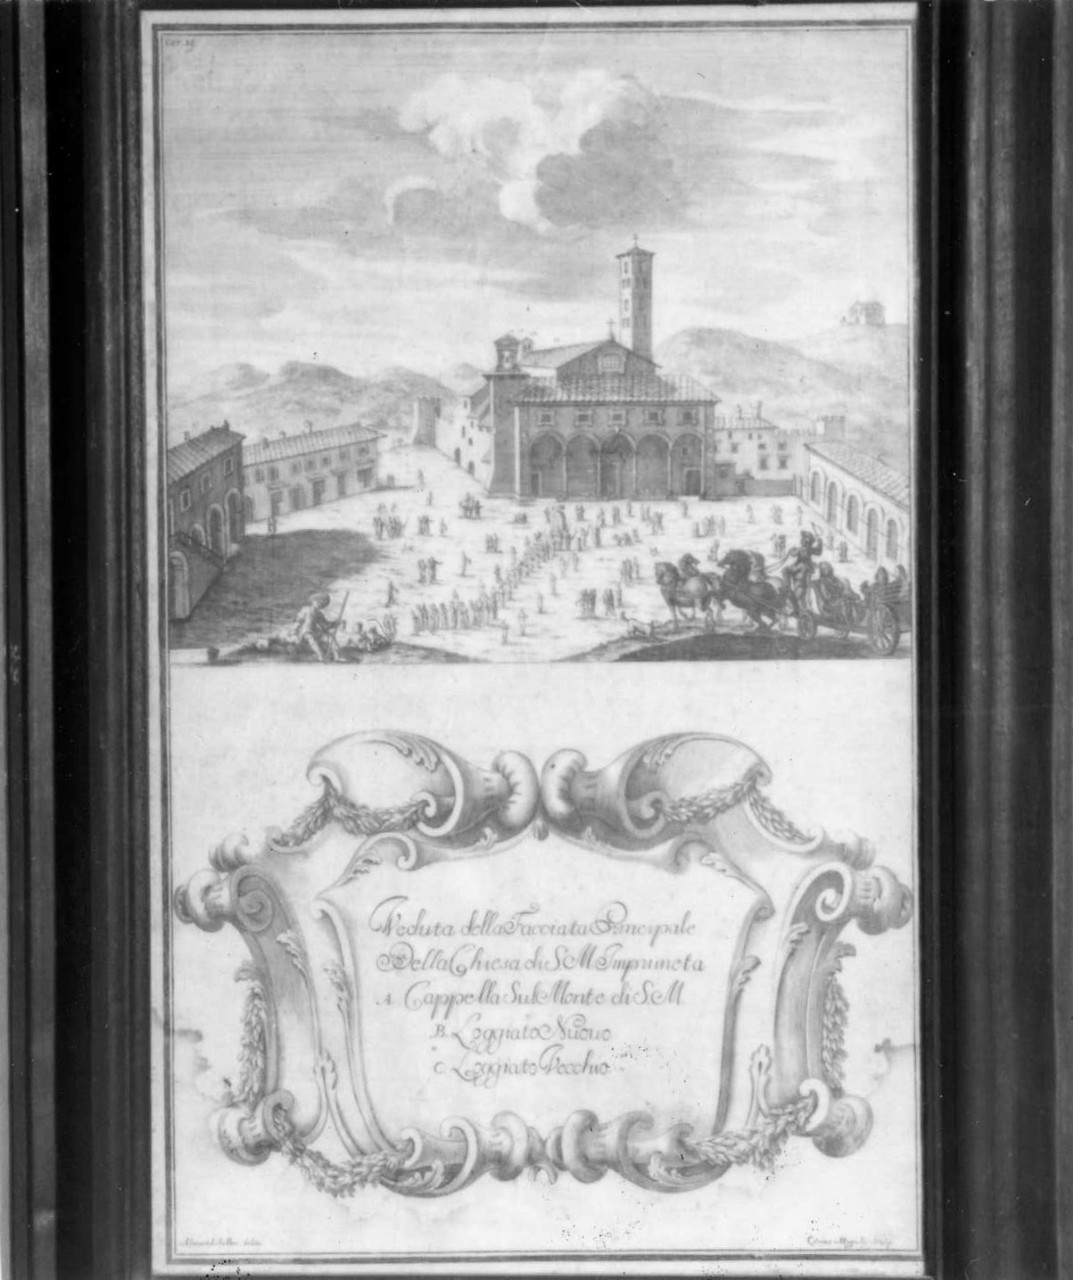 Veduta della Facciata Principale
Della Chiesa di S M Impruneta
A. Cappella Sul Monte di S.M
B. Loggiato Nuouo
C. Loggiato Vecchio